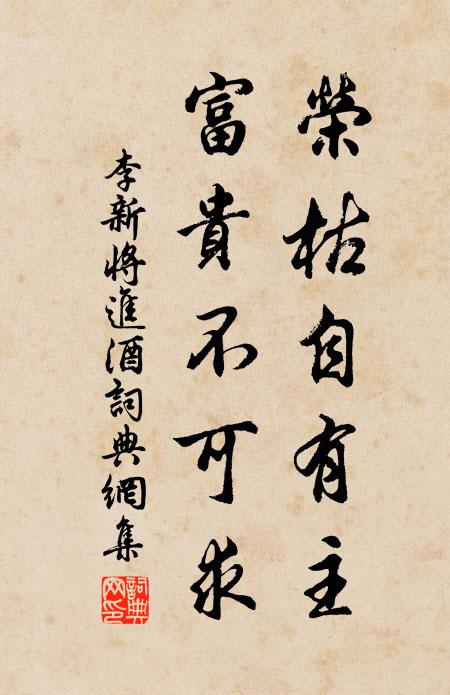 榮枯自有主
富貴不可求
李新將進酒詞典網集
詞典
网印